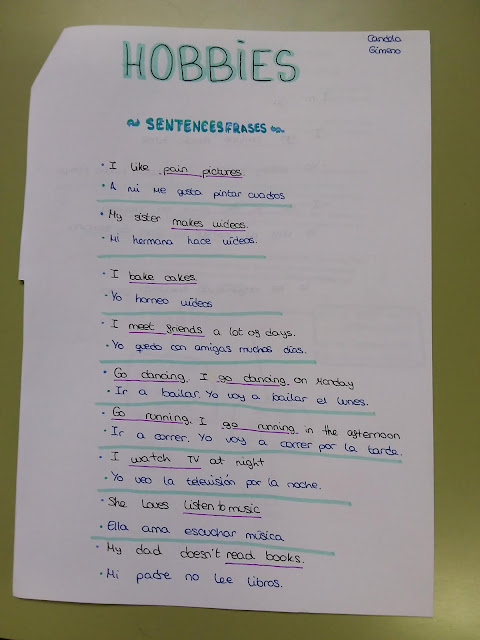 Candela
Gimeno
HOBBIES
SENTENCES/FRASES
· I like pain pictures
· A mi me gusta pintar cuadros
· My sister makes videos.
· Mi hermana hace vídeos.
· I bake cakes
· Yo horneo vídeos
· I meet friends a lot of days.
· Yo quedo con amigas muchos días.
· Go dancing. I go dancing on Monday
· Ir a bailar. Yo voy a bailar el lunes.
· Go running. I go running in the afternoon
· Ir a correr. Yo voy a correr por la tarde.
· I watch TV at night
· Yo veo la televisión por la noche.
· She loves listen to music
· Ella ama escuchar música
· My dad doesn't read books.
· Mi padre no lee libros.